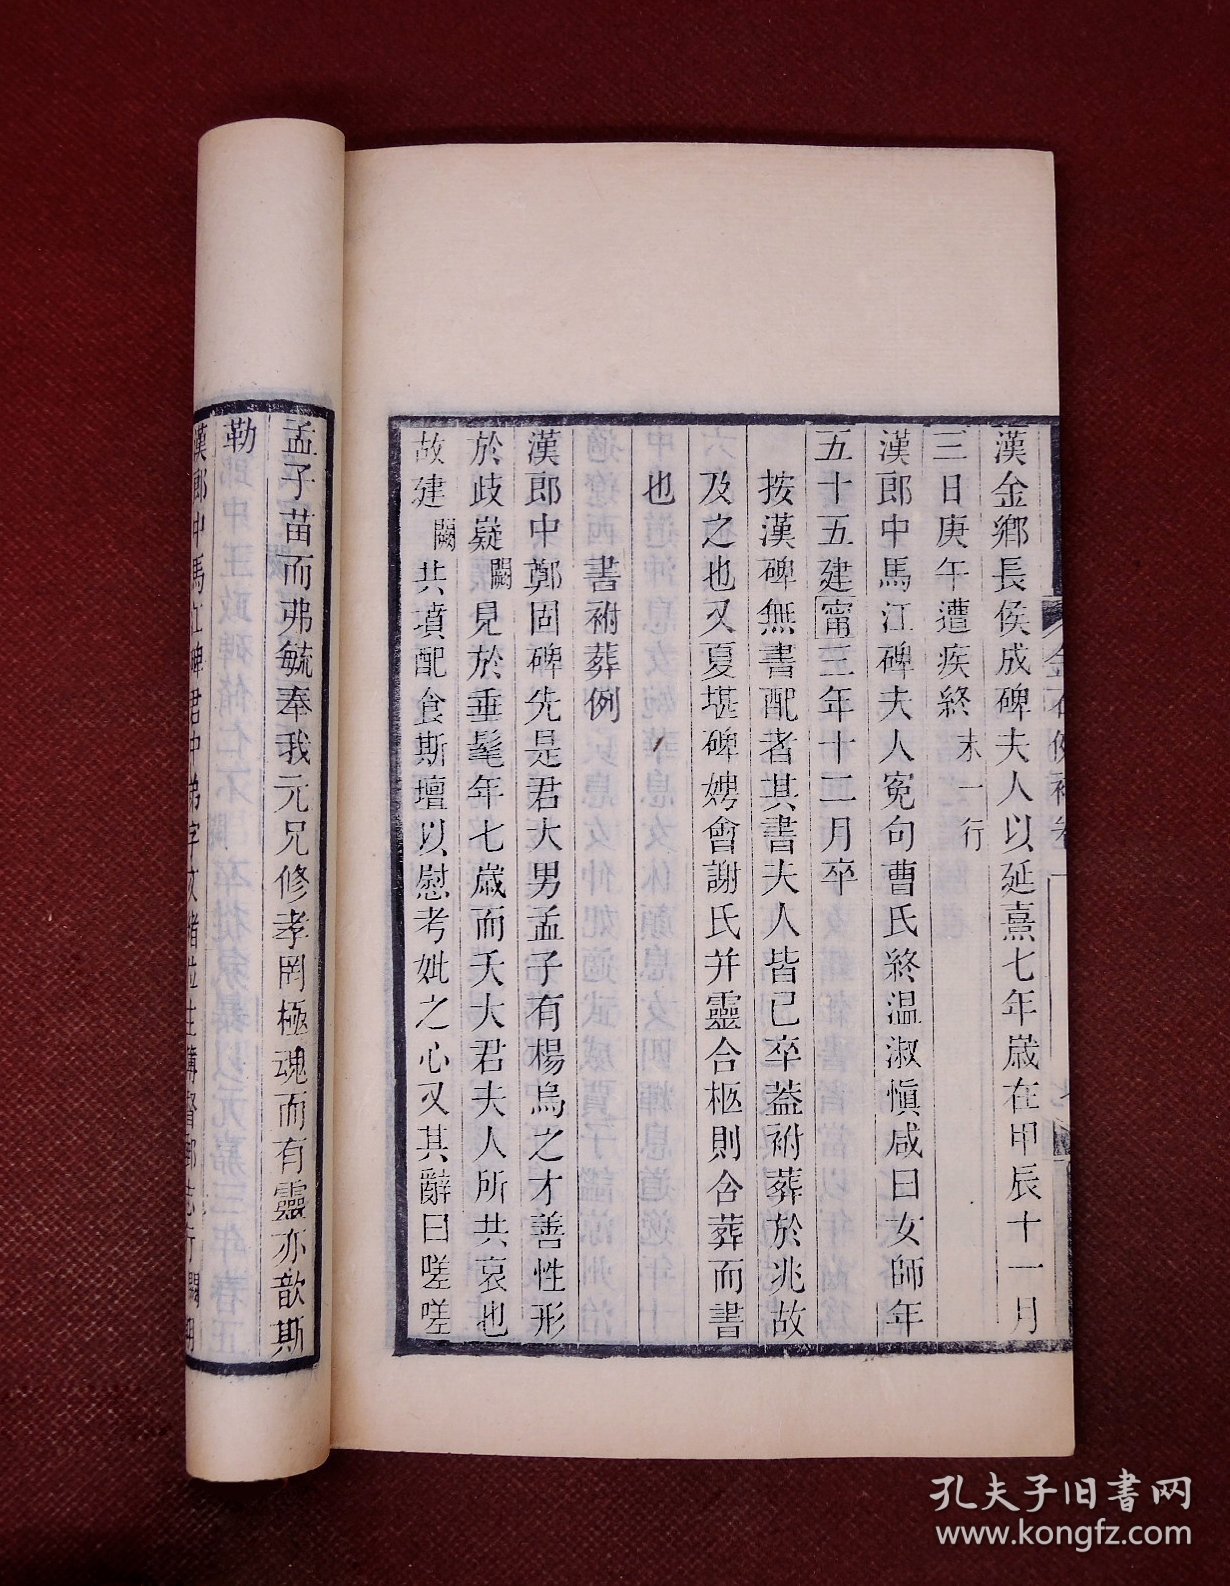 漢金鄉長侯成碑夫人以延熹七年歲在甲辰十一月
三日庚午遭疾終末一行
漢郎中馬江碑夫人冤句曹氏終温淑愼咸曰女師年
五十五建甯三年十二月卒
按漢碑無書配者其書夫人皆已卒葢祔葬於兆故
及之也又夏堪碑娉會謝氏并靈合柩則合葬而書
也
書祔葬例
漢郎中鄭固碑先是君大男孟子有楊烏之才善性形
於歧嶷闕見於垂髦年七歲而夭大君夫人所共哀也
故建闕共墳配食斯壇以慰考妣之心又其辭曰嗟嗟
孟子苗而弗毓奉我元兄修孝罔極魂而有靈亦歆斯
勒
漢郎中馬江碑君中弟字文緒
金石例補卷一
孔夫子旧书网
www.kongfz.com